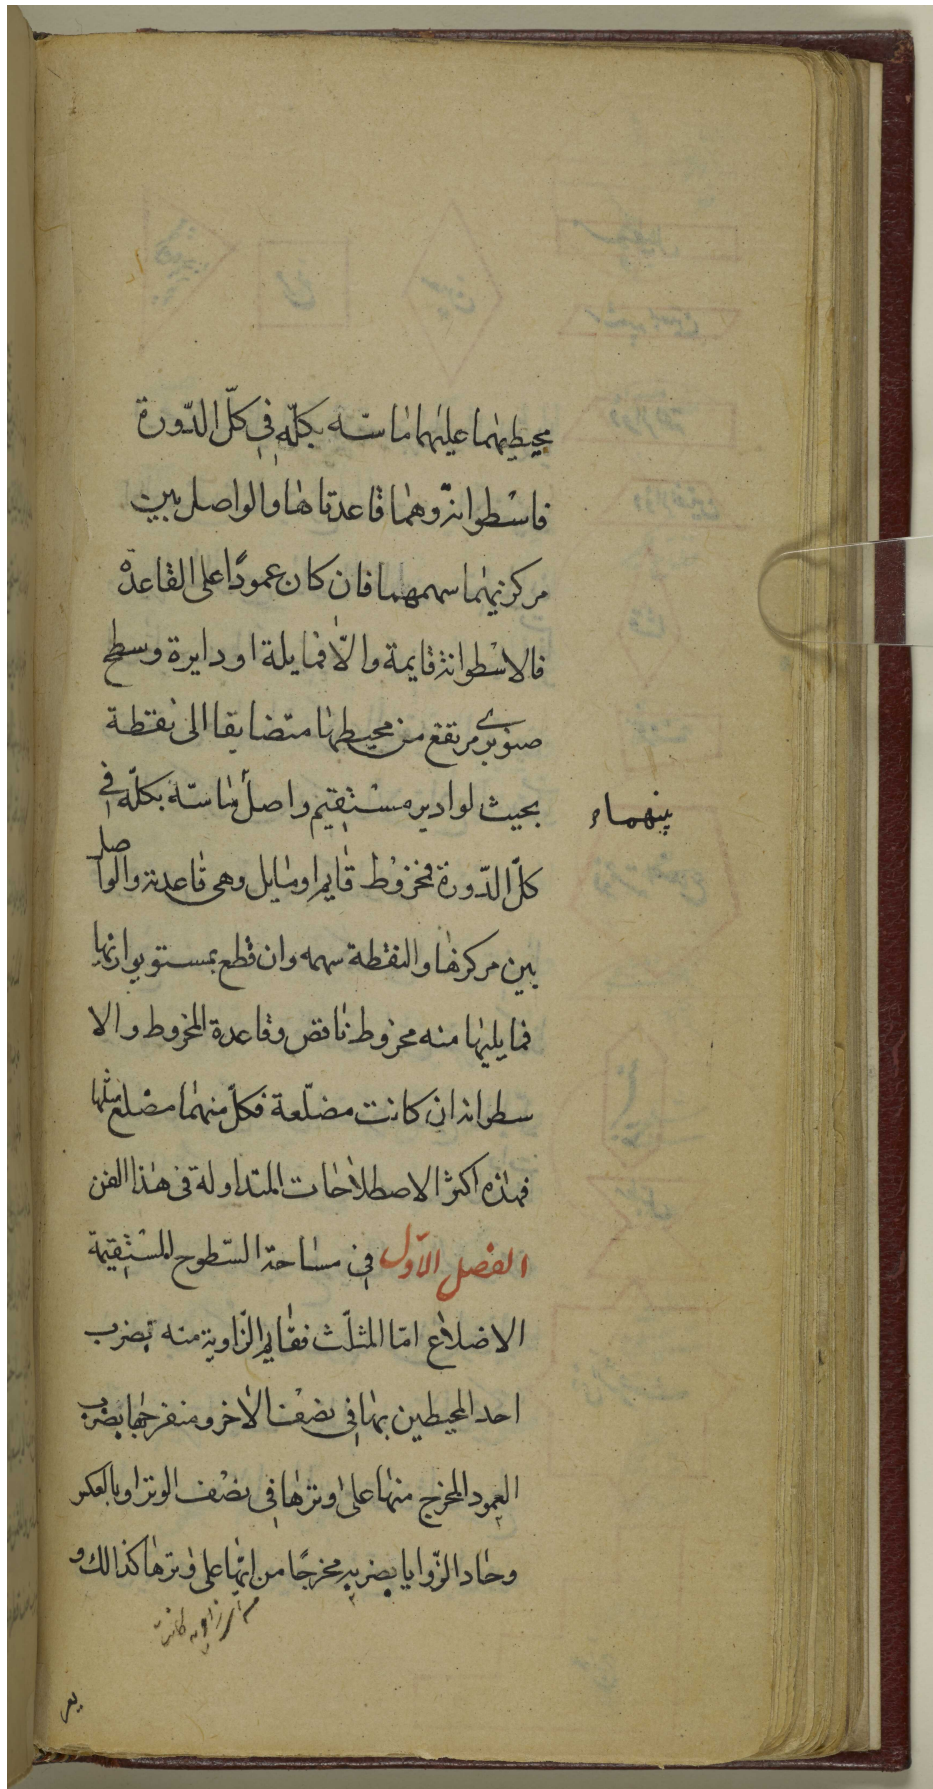 محيطيهما عليهما ماسّه بكلّه في كلّ الدّورة
فاسطوانة وهما قاعدتاها والواصل بين
مركزيهما سهمهما فان كان عمودًا على القاعدة
فالاسطوانة قايمة والّا فمايلة او دايرة وسطح
صنوبرى مرتفع من محيطها متضايقا الى نقطة
بحيث لو ادير مستقيم واصل ماسّه بكلّه في
بينهما
كلّ الدّورة فمخروط قايم او مايل وهى قاعدته والواصل
بين مركزها والنقطة سهمه وان قطع بمستو يوازيها
فما يليها منه مخروط ناقص وقاعدة المخروط والا
سطوانة ان كانت مضلّعة فكلّ منهما مضلع مثلها
فهذه اكثر الاصطلاحات المتداولة فى هذا الفن
الفصل الاوّل في مساحة السّطوح المستقيمة
الاضلاع امّا المثلّث فقايم الزّاوية منه تضرب
احد المحيطين بها في نصف الاخر ومنفرجها بضرب
العمود المخرج منها على وترها في نصف الوتر او بالعكس
وحاد الزّوايا بضربه مخرجًا من ايّها على وترها كذالك و
زاويه كانت
يعر